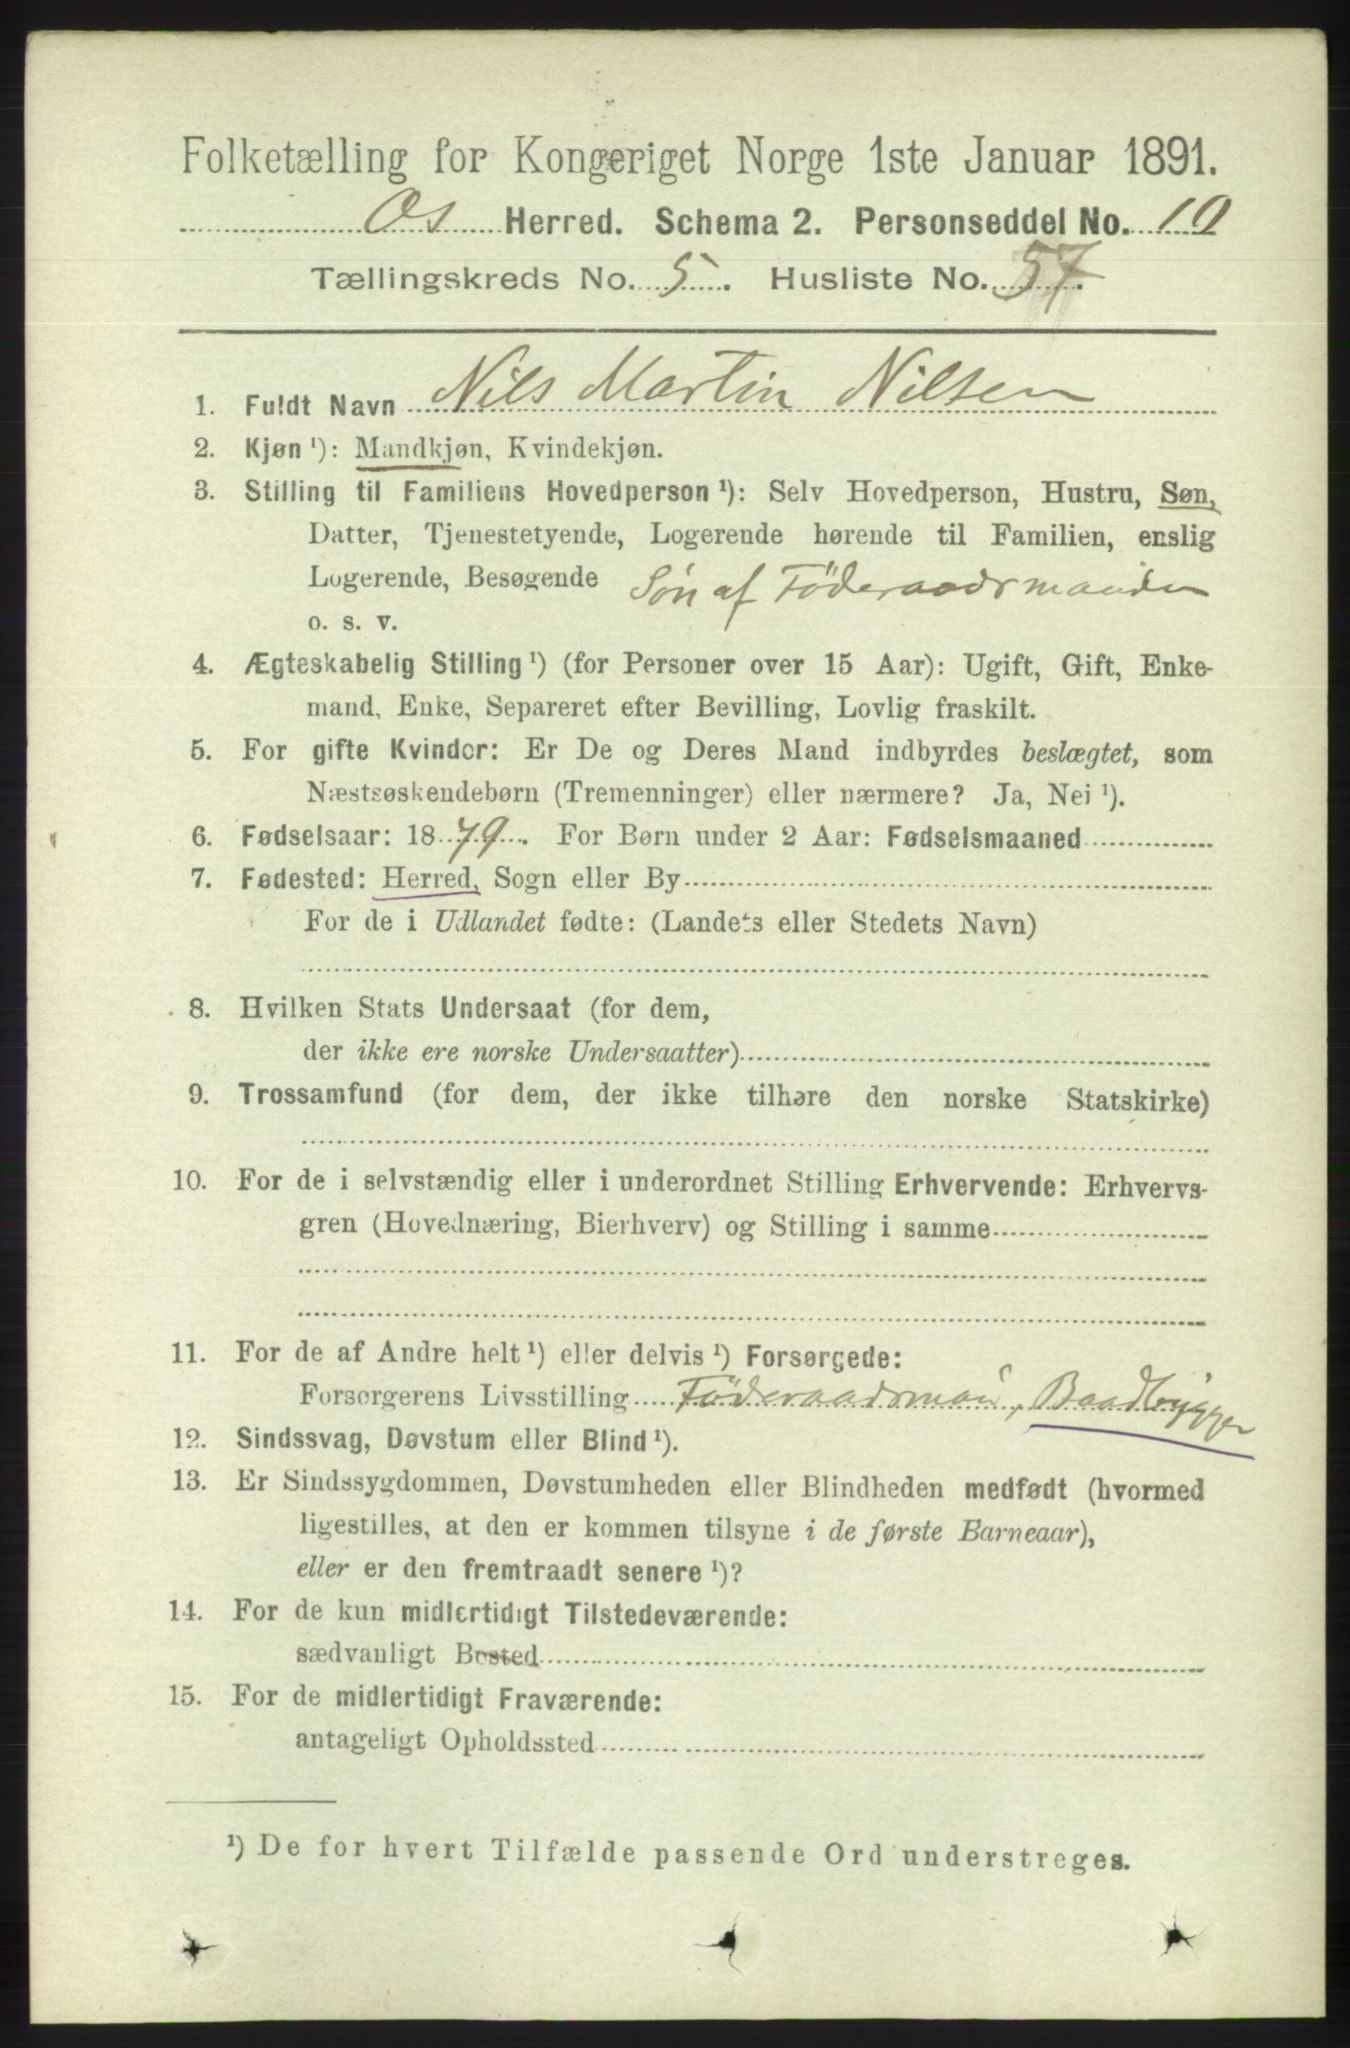 Folketælling for Kongeriget Norge 1ste Januar 1891.
Os Herred. Schema 2. Personseddel No. 10
Tællingskreds No. 5. Husliste No. 57.
1. Fuldt Navn Nils Martin Nilsen
2. Kjøn ¹): Mandkjøn, Kvindekjøn.
3. Stilling til Familiens Hovedperson ¹): Selv Hovedperson, Hustru, Søn,
Datter, Tjenestetyende, Logerende hørende til Familien, enslig
Logerende, Besøgende Søn af Föderaadsmanden
o. s. v.
4. Ægteskabelig Stilling ¹) (for Personer over 15 Aar): Ugift, Gift, Enke-
mand, Enke, Separeret efter Bevilling, Lovlig fraskilt.
5. For gifte Kvinder: Er De og Deres Mand indbyrdes beslægtet, som
Næstsøskendebørn (Tremenninger) eller nærmere? Ja, Nei ¹).
6. Fødselsaar: 1879. For Børn under 2 Aar: Fødselsmaaned
7. Fødested: Herred, Sogn eller By
For de i Udlandet fødte: (Landets eller Stedets Navn)
8. Hvilken Stats Undersaat (for dem,
der ikke ere norske Undersaatter)
9. Trossamfund (for dem, der ikke tilhøre den norske Statskirke)
10. For de i selvstændig eller i underordnet Stilling Erhvervende: Erhvervs-
gren (Hovednæring, Bierhverv) og Stilling i samme
11. For de af Andre helt ¹) eller delvis ¹) Forsørgede:
Forsørgerens Livsstilling Föderaadsman, Baadbygger
12. Sindssvag, Døvstum eller Blind ¹).
13. Er Sindssygdommen, Døvstumheden eller Blindheden medfødt (hvormed
ligestilles, at den er kommen tilsyne i de første Barneaar),
eller er den fremtraadt senere ¹)?
14. For de kun midlertidigt Tilstedeværende:
sædvanligt Bosted
15. For de midlertidigt Fraværende:
antageligt Opholdssted
¹) De for hvert Tilfælde passende Ord understreges.